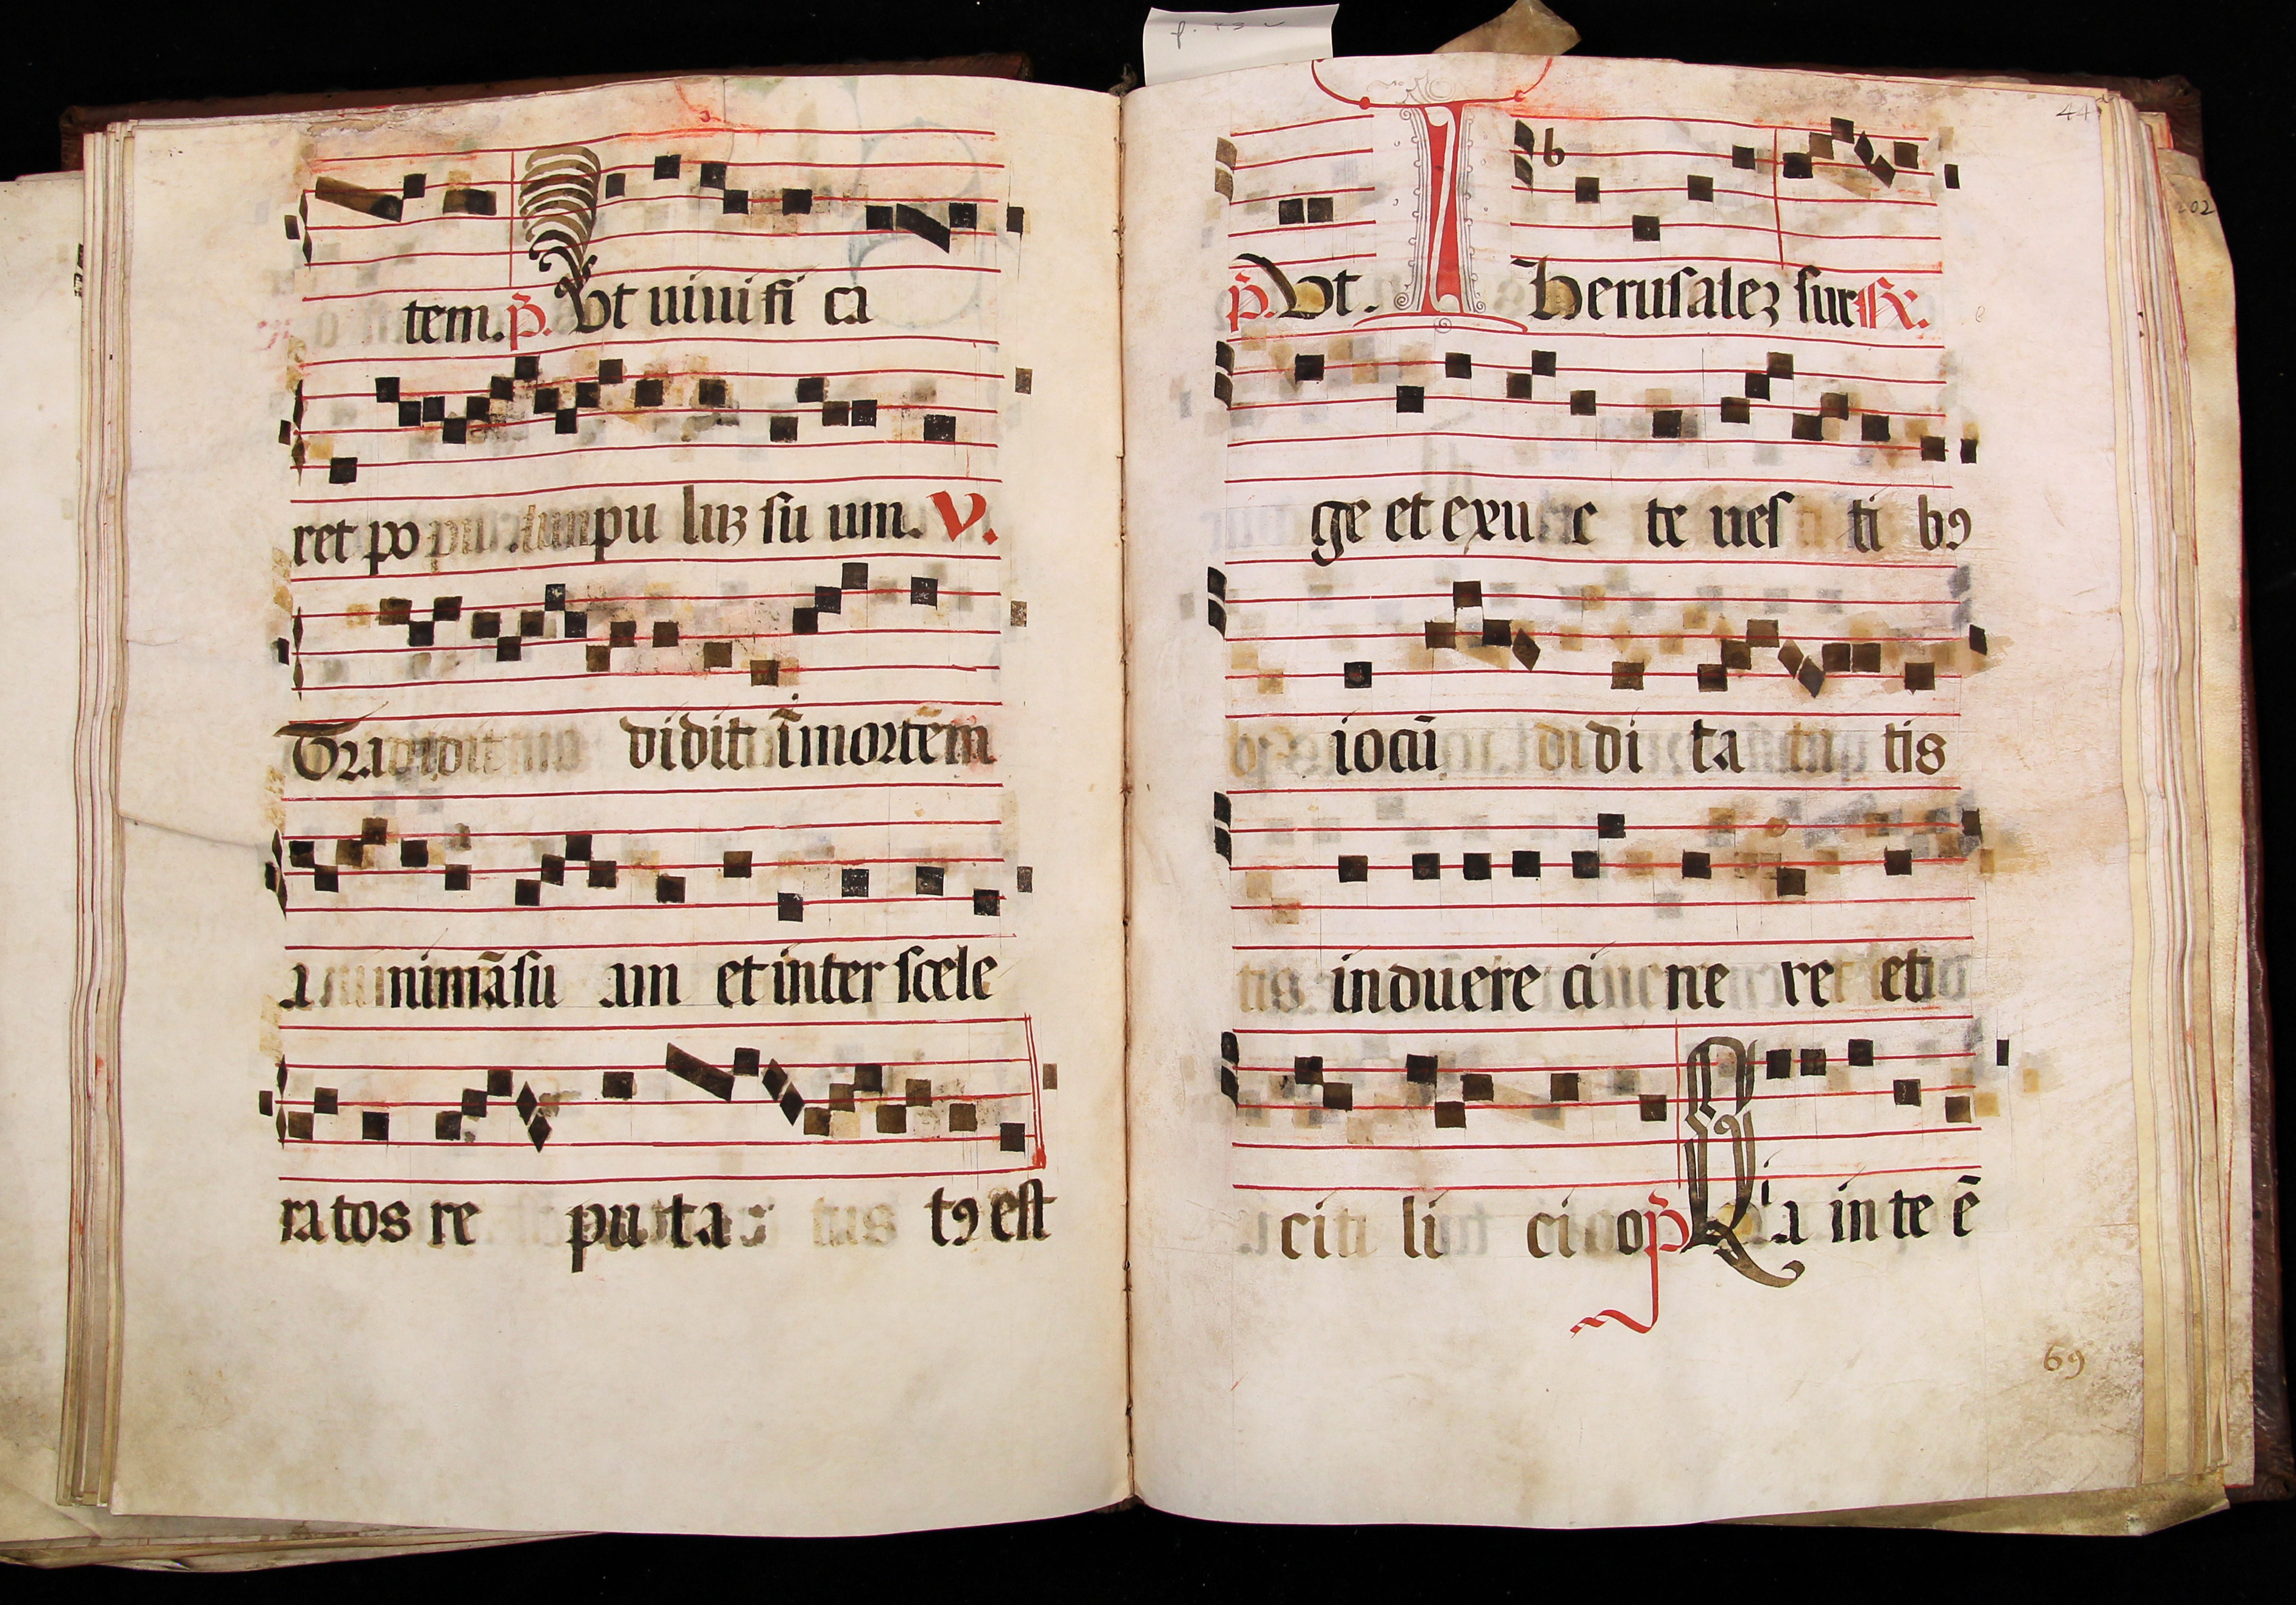 tem. p̄. Ut uiuifi ca
ret po pu luʒ su um. V.
Tra didit ī mortēm
a nimā su am et inter scele
ratos re puta tꝰ est
44
p̄. Ut. I herusaleʒ sur ℟.
ge et exu e te ues ti bꝯ
iocū di ta tis
induere ci ne re et
cili ci o p̄ Qⁱa in te ē
69
202